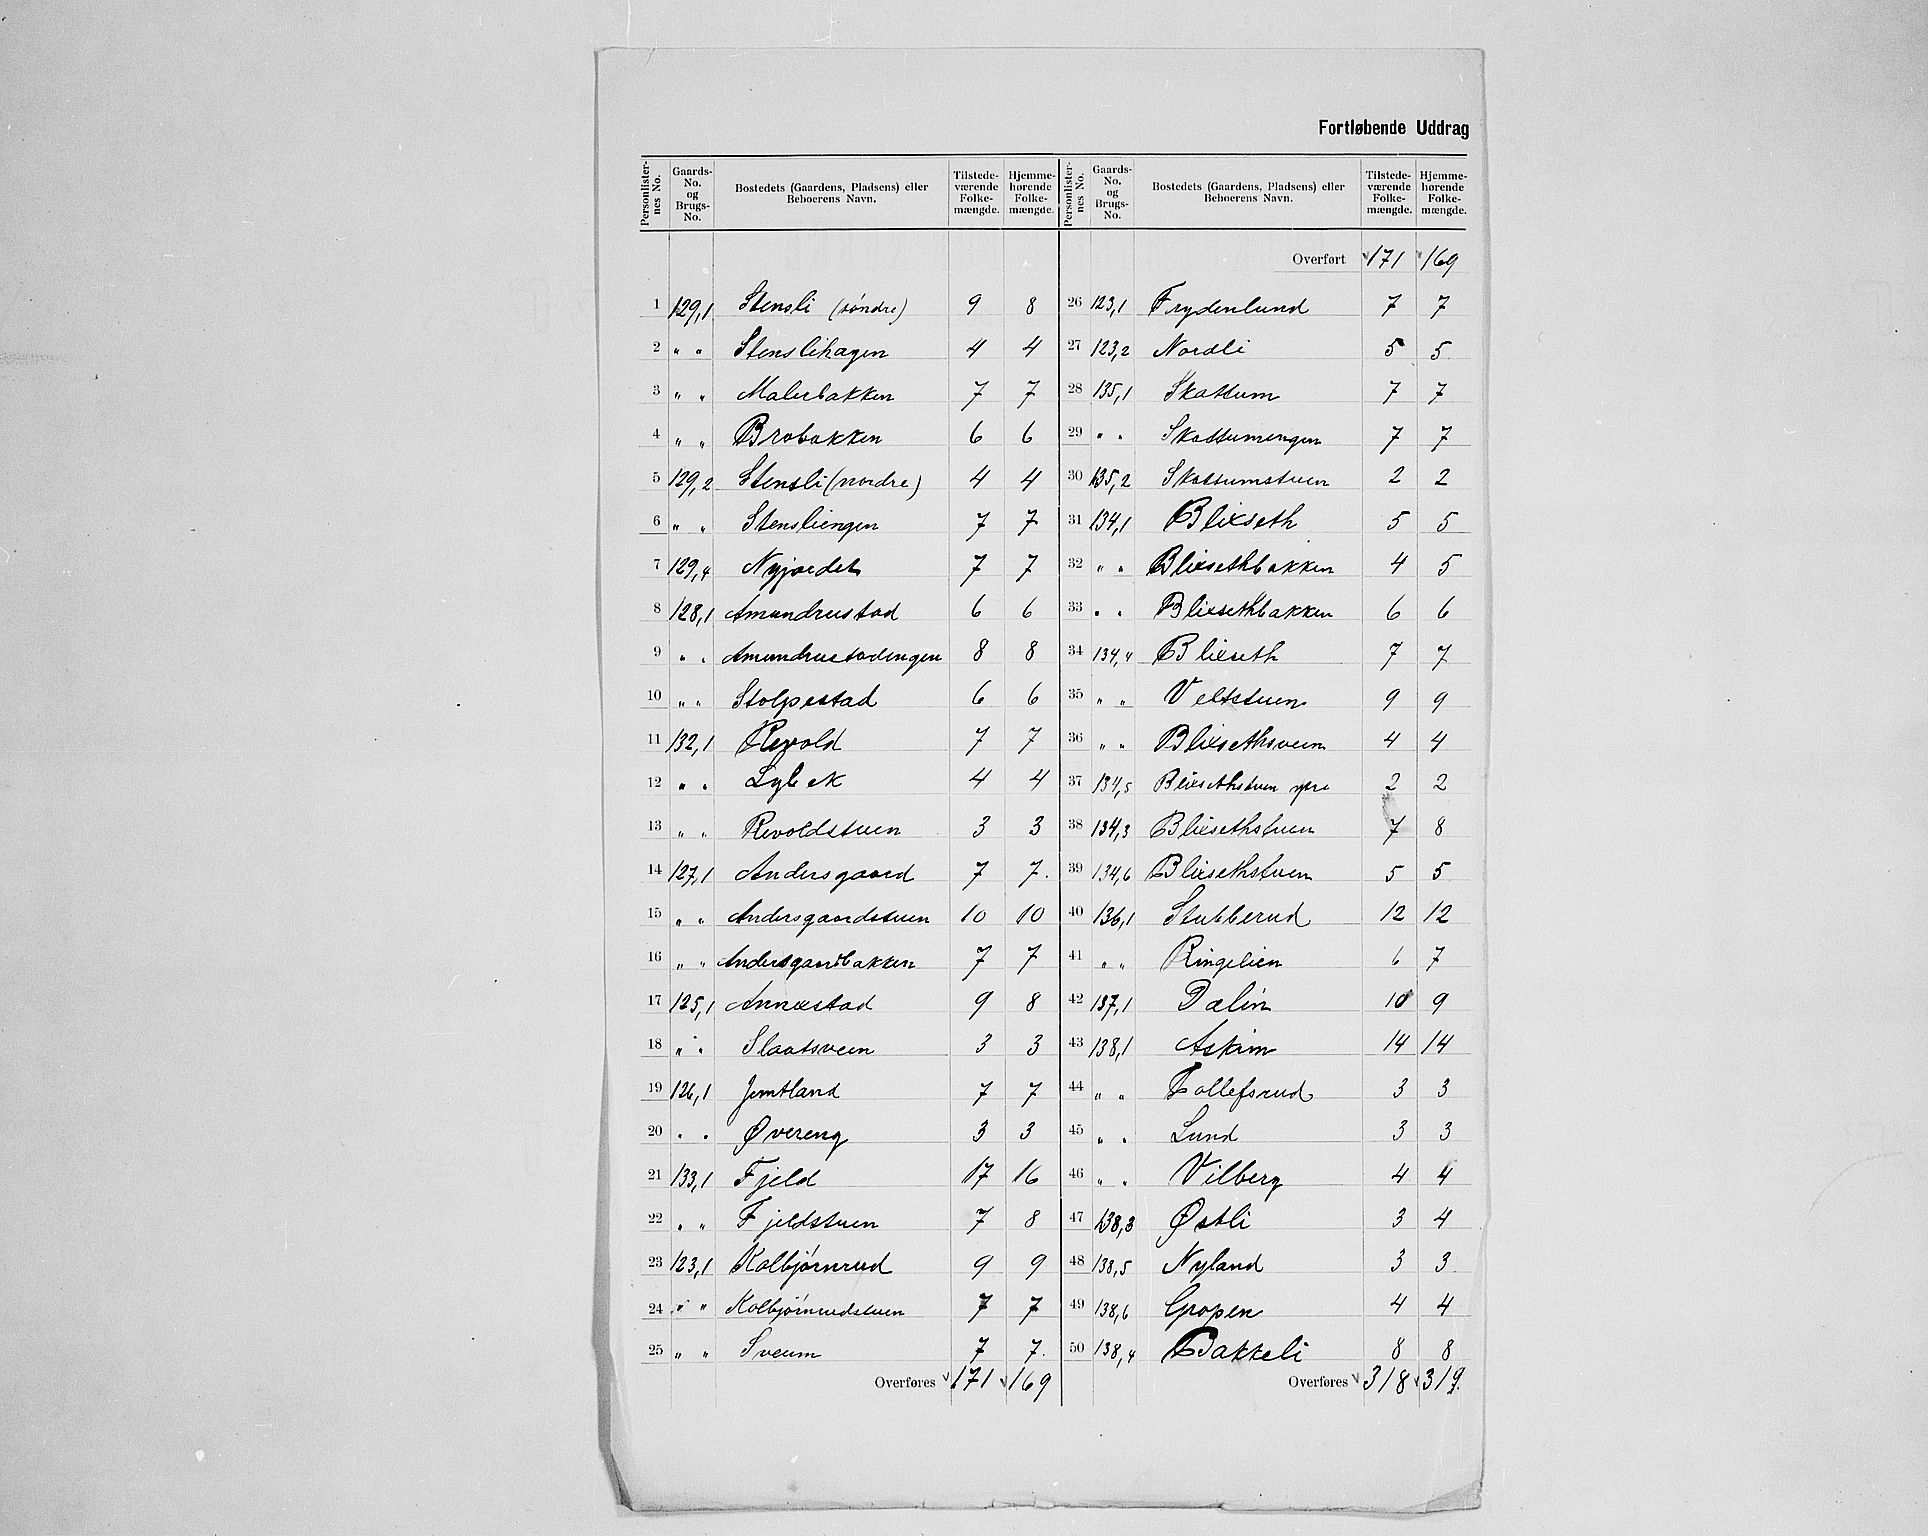 Fortløbende Uddrag
Personlister-nes No. Gaards-No. og Brugs-No. Bostedets (Gaardens, Pladsens) eller Beboerens Navn. Tilstede-værende Folke-mængde. Hjemme-hørende Folke-mængde.
1 129,1 Stensli (söndre) 9 8
2 " " Stenslihagen 4 4
3 " " Malerbakken 7 7
4 " " Brobakken 6 6
5 129,2 Stensli (nordre) 4 4
6 " " Stensliengen 7 7
7 129,4 Nyjordet 7 7
8 128,1 Amundrustad 6 6
9 " " Amundrustadengen 8 8
10 " " Stolpestad 6 6
11 132,1 Revold 7 7
12 " " Lybek 4 4
13 " " Revoldstuen 3 3
14 127,1 Andersgaard 7 7.
15 " " Andersgaardstuen 10 10
16 " " Andersgaardbakken 7 7
17 125,1 Annexstad 9 8
18 " " Slaatsveen 3 3
19 126,1 Jemtland 7 7
20 " " Øvereng 3 3
21 133,1 Fjeld 17 16
22 " " Fjeldstuen 7 8
23 123,1 Kolbjørnrud 9 9
24 " " Kolbjørnrudstuen 7 7
25 " " Sveum 7 7.
Overføres 171 169
Personlister-nes No. Gaards-No. og Brugs-No. Bostedets (Gaardens, Pladsens) eller Beboerens Navn. Tilstede-værende Folke-mængde. Hjemme-hørende Folke-mængde.
Overført 171 169
26 123,1 Frydenlund 7 7
27 123,2 Nordli 5 5
28 135,1 Skattum 7 7
29 " " Skattumengen 7 7
30 135,2 Skattumstuen 2 2
31 134,1 Blixseth 5 5
32 " " Blixsethbakken 4 5
33 " " Blixsethbakken 6 6
34 134,4 Blixseth 7 7
35 " " Veltstuen 9 9
36 " " Blixsethsveen 4 4
37 134,5 Blixsethstuen 2 2
38 134,3 Blixsethstuen 7 8
39 134,6 Blixsethstuen 5 5
40 136,1 Stubberud 12 12
41 " " Ringelien 6 7
42 137,1 Dalin 10 9
43 138,1 Askim 14 14
44 " " Tollefsrud 3 3
45 " " Lund 3 3
46 " " Vilberg 4 4
47 138,3 Østli 3 4
48 138,5 Nyland 3 3
49 138,6 Gropen 4 4
50 138,4 Bakkeli 8 8
Overføres 318 319.